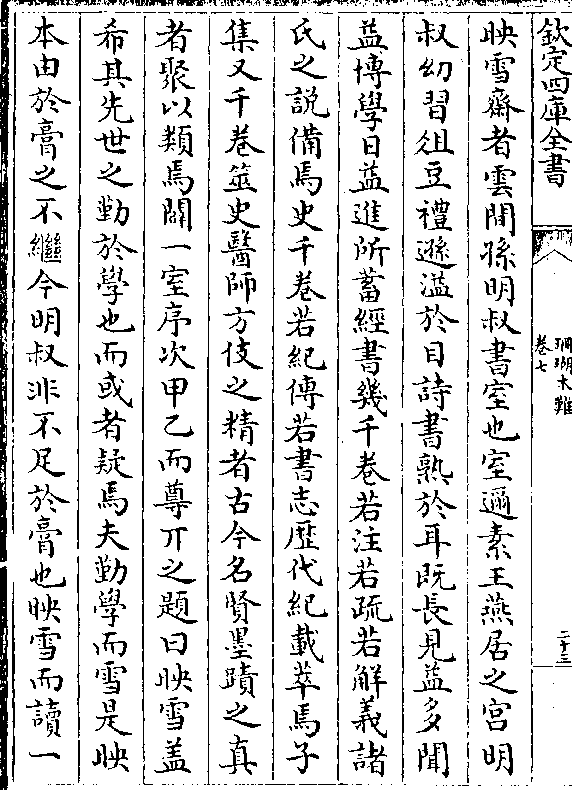 欽定四庫全書
珊瑚木難
卷七
二十三
映雪齋者雲間孫明叔書室也室邇素王燕居之宫明
叔幼習俎豆禮遜溢於目詩書熟於耳既長見益多聞
益博學日益進所蓄經書幾千卷若注若疏若解義諸
氏之説備焉史千卷若紀傳若書志歴代紀載萃焉子
集又千卷筮史醫師方伎之精者古今名賢墨蹟之真
者聚以類焉闢一室序次甲乙而尊丌之題曰映雪盖
希其先世之勤於學也而或者疑焉夫勤學而雪是映
本由於膏之不繼今明叔非不足於膏也映雪而讀一